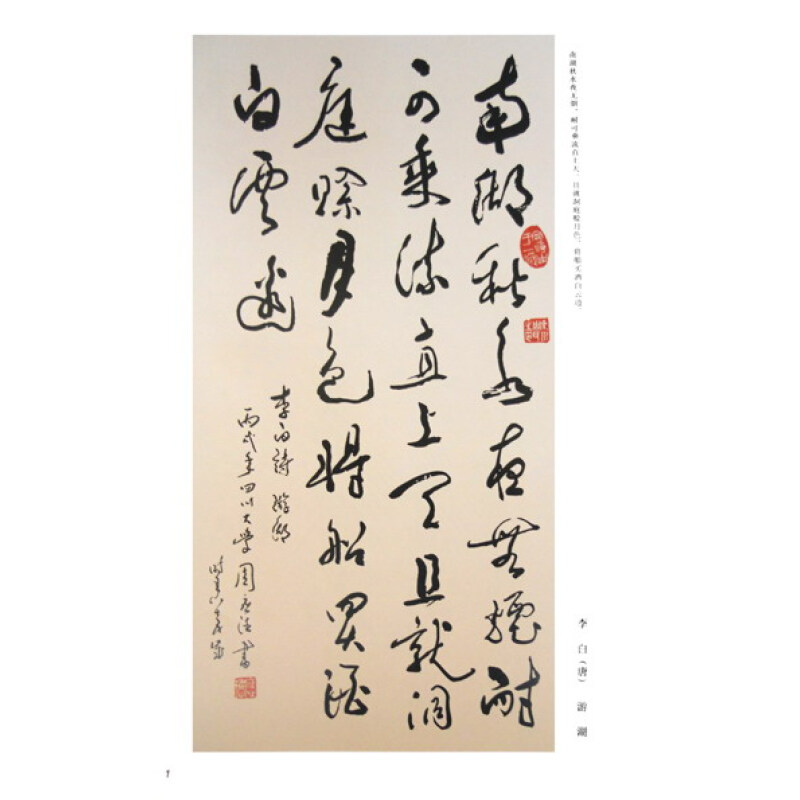 南湖秋水夜無煙耐
可乘流直上天且就洞
庭賖月色將船買酒
白雲邊
李白詩 游湖
丙戌年四川大學周德書
南湖秋水夜无烟，耐可乘流直上天。且就洞庭赊月色，将船买酒白云边。
李白（唐） 游湖
1